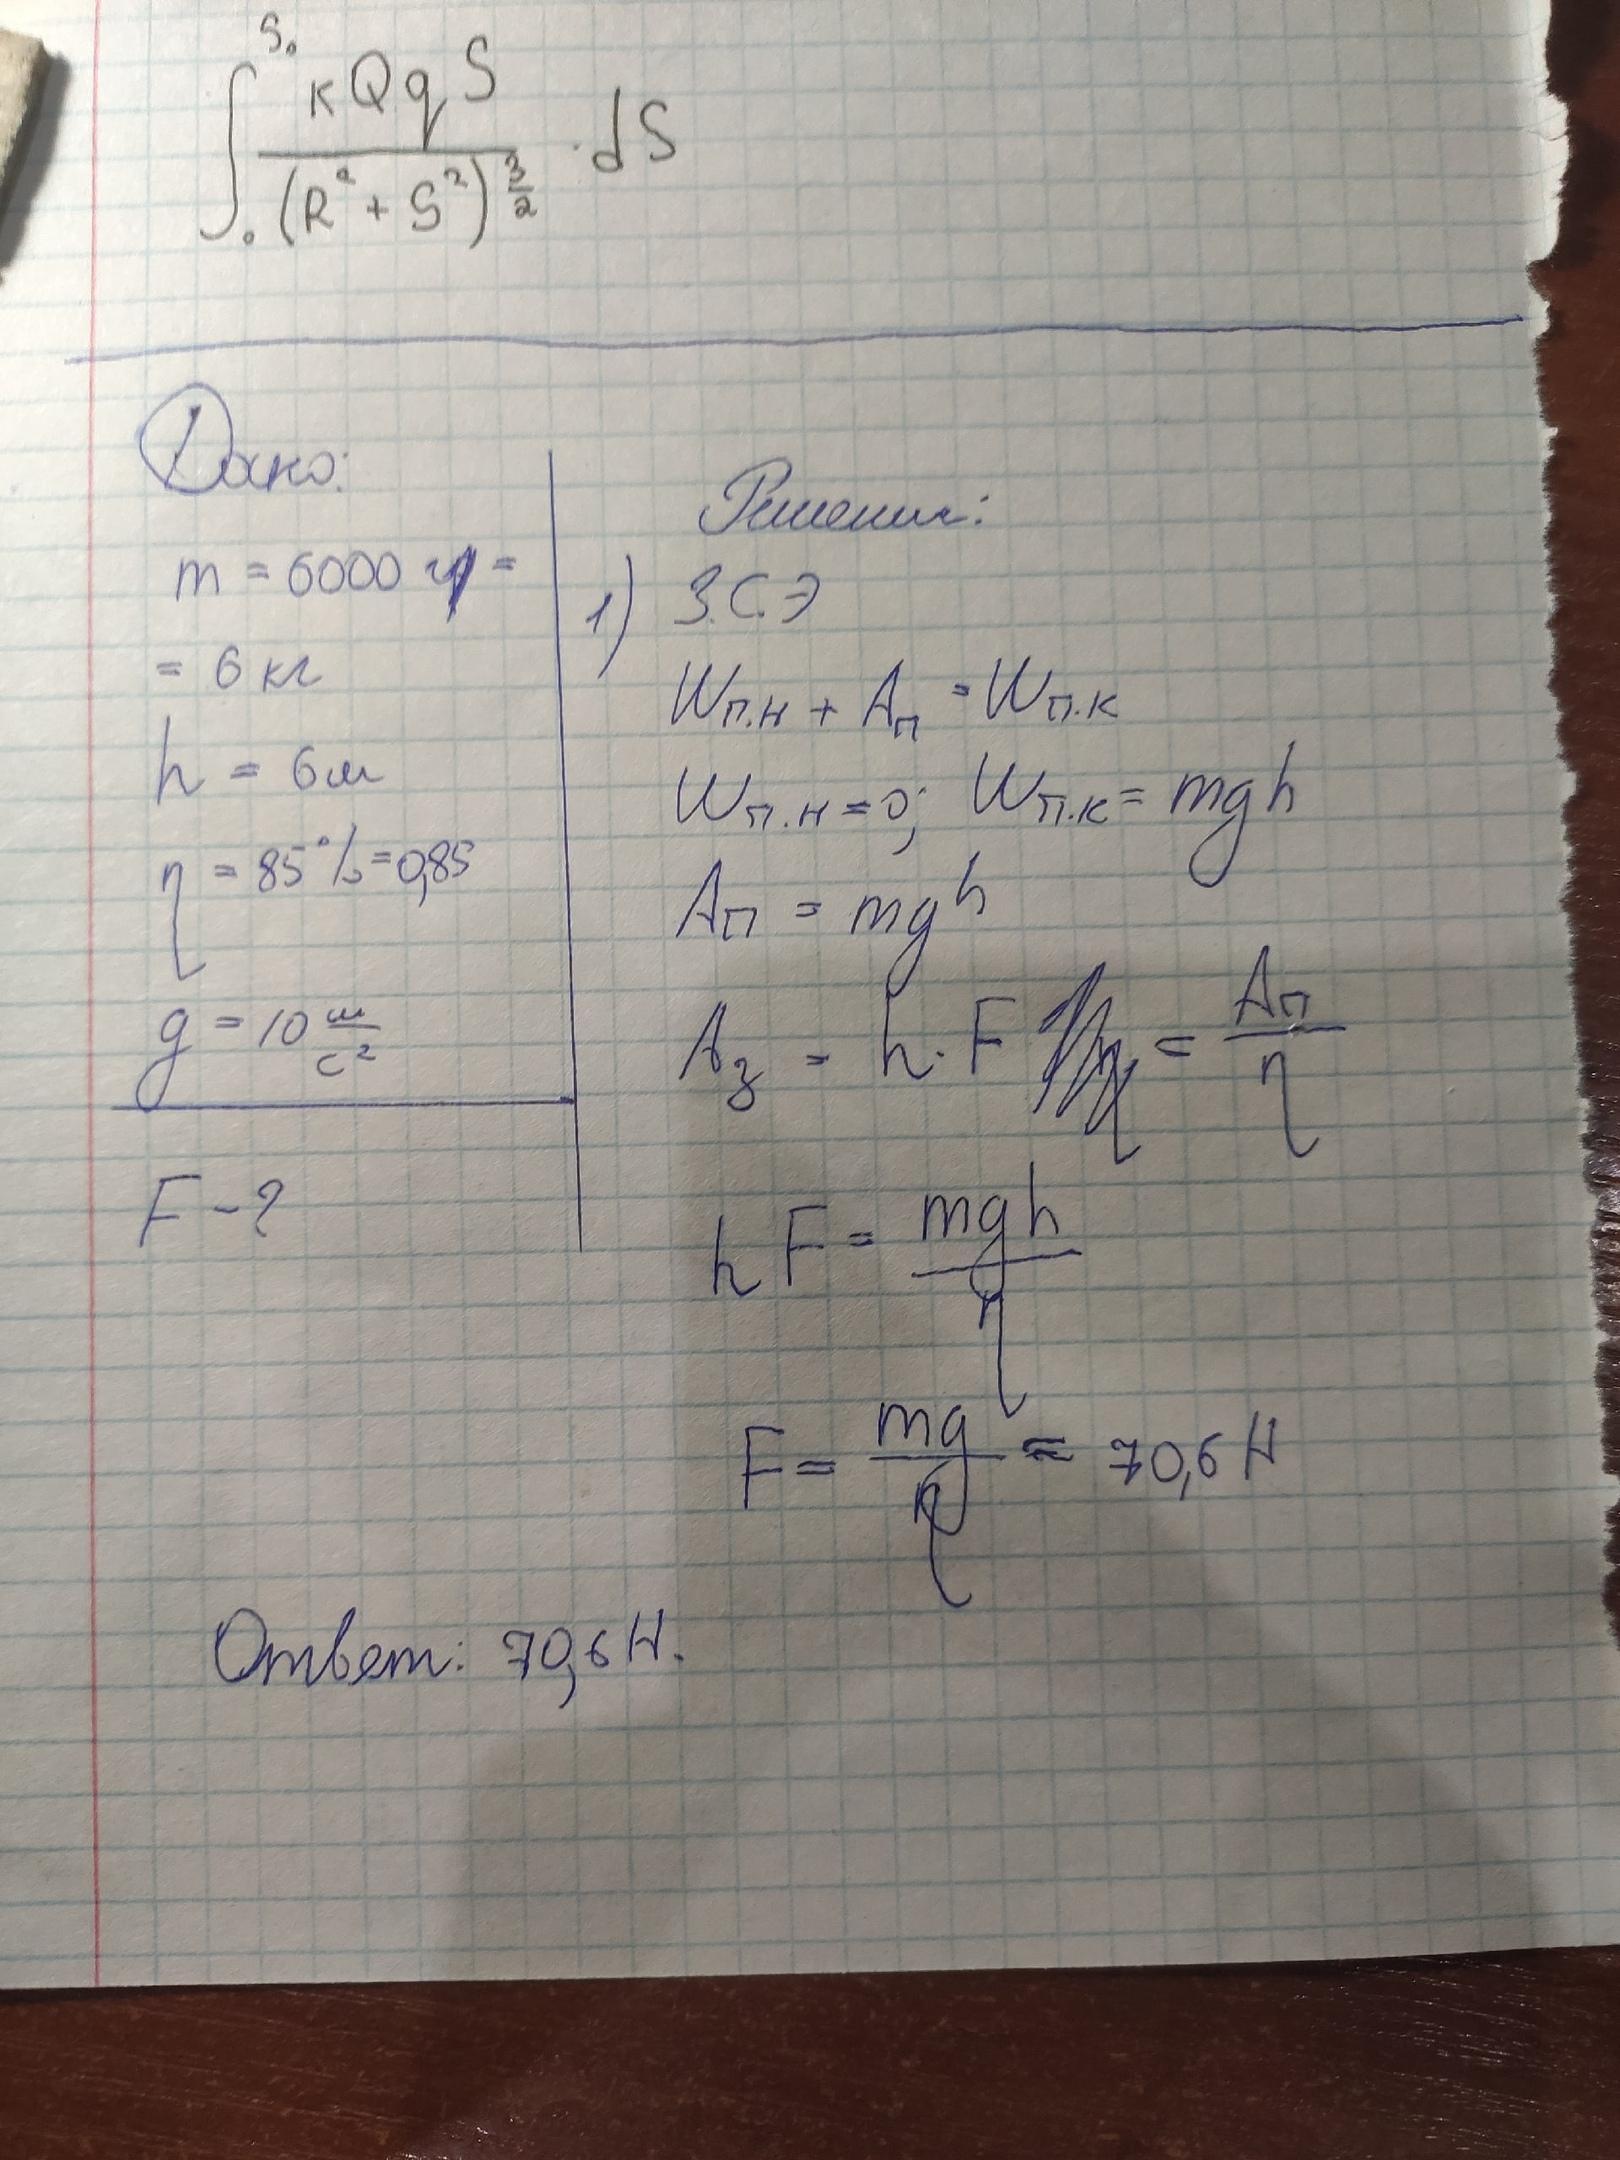 ∫₀^S₀ kQqS / (R² + S²)^(3/2) · dS
Дано:
m = 6000 г =
= 6 кг
h = 6 м
η = 85% = 0,85
g = 10 м/с²
F - ?
Решение:
1) З.С.Э
Wп.н + Aп = Wп.к
Wп.н = 0; Wп.к = mgh
Aп = mgh
Aз = h · F = Aп/η
hF = mgh/η
F = mg/η ≈ 70,6 Н
Ответ: 70,6 Н.